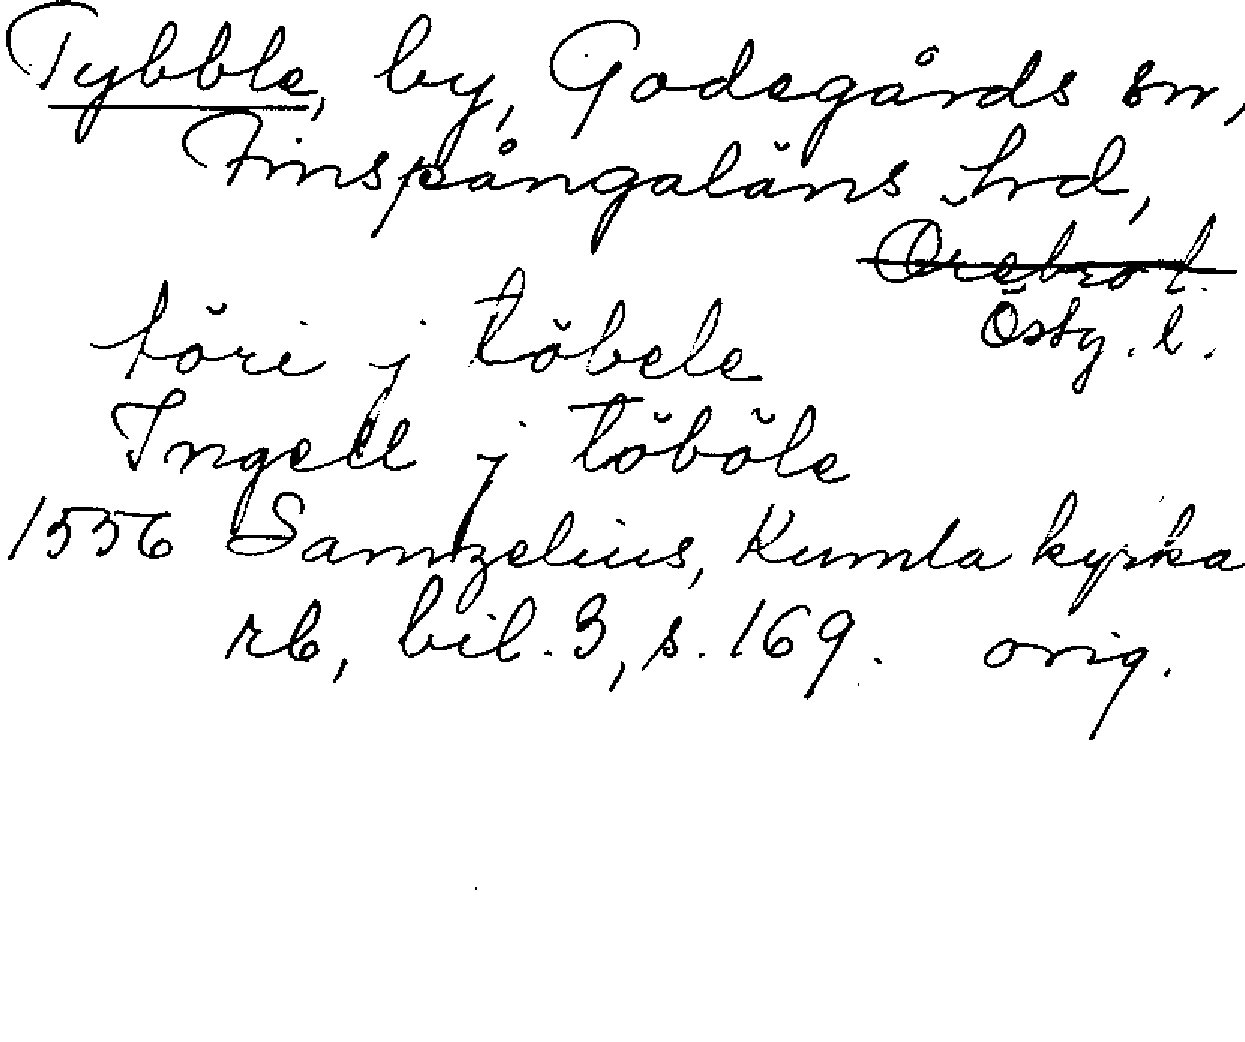 Tybble, by, Godegårds sn,
Finspångaläns hrd,
Örebro l.
Östg. l.
töre j töbele
Ingell j töböle
1556 Samzelius, Kumla kyrka
rb, bil. 3, s. 169. orig.